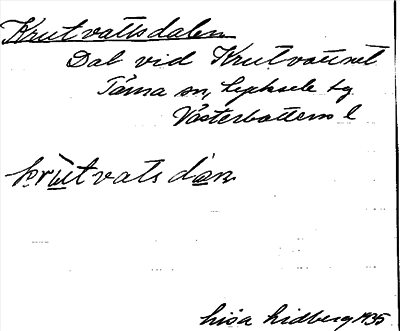 Krutvattsdalen
Dal vid Krutvattnet
Tärna sn, Lycksele tg
Västerbottens l
krùtvatsdan
Lisa Lidberg 1935